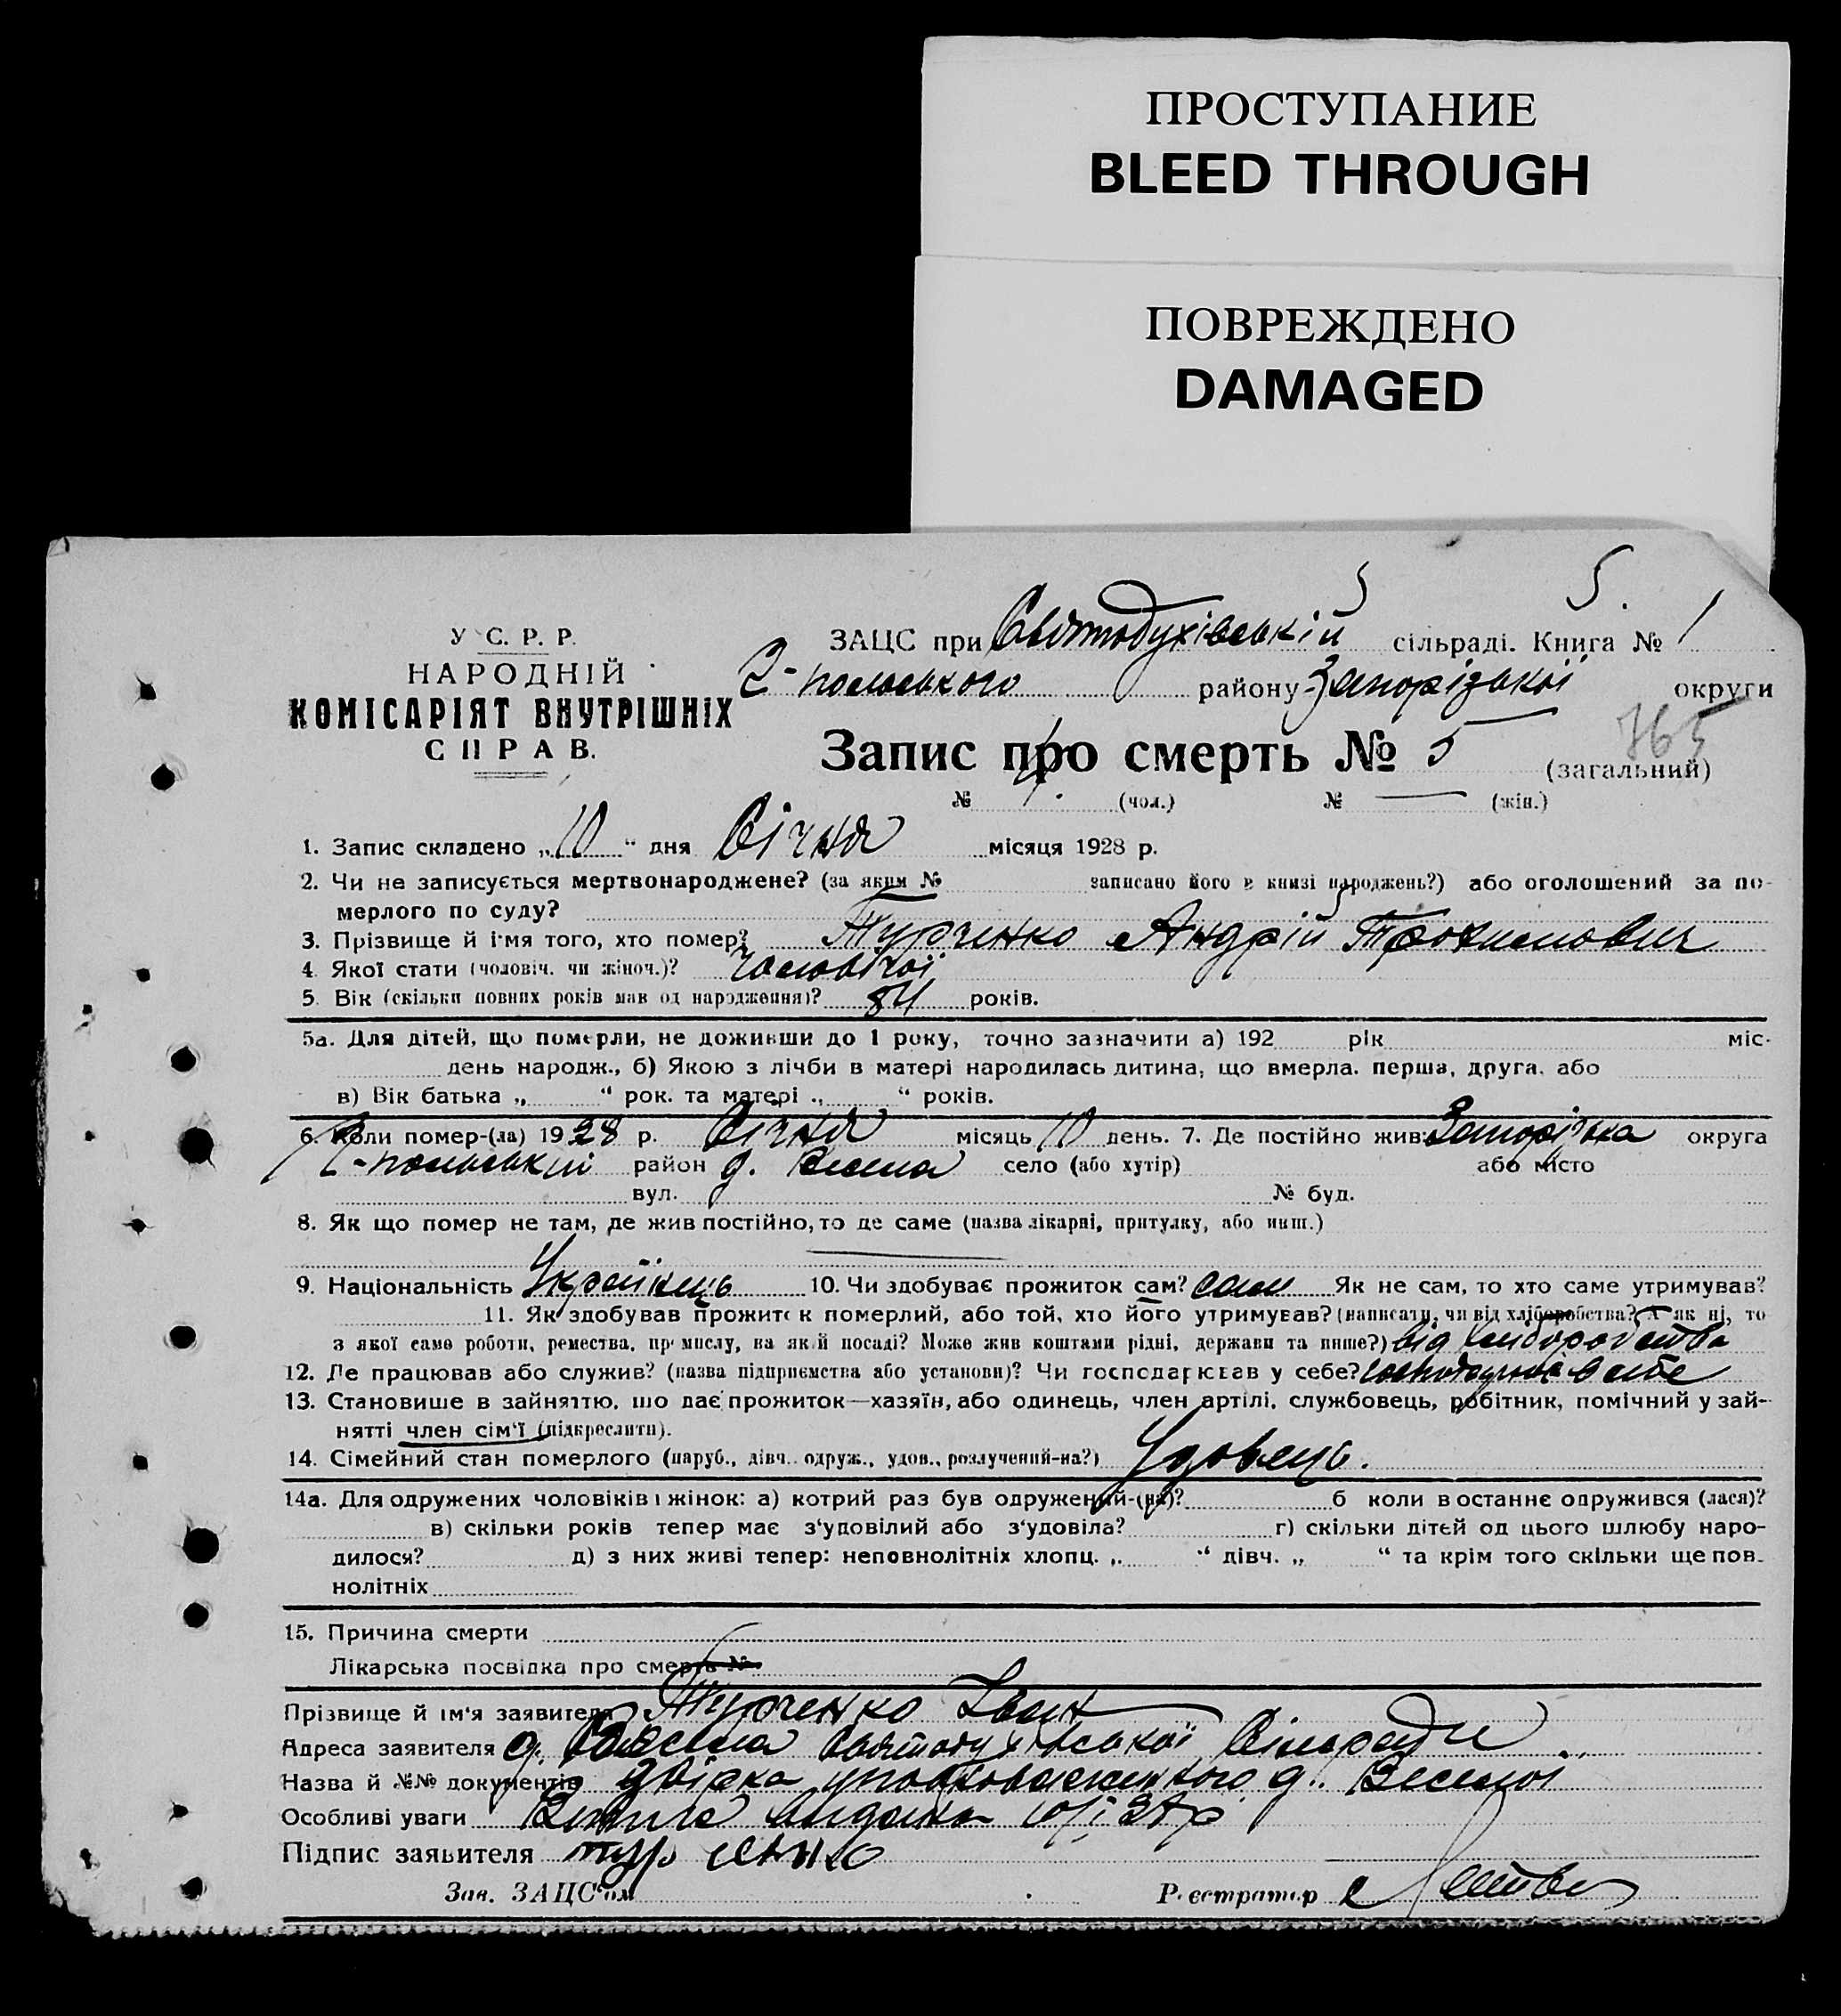 ПРОСТУПАНИЕ
BLEED THROUGH
ПОВРЕЖДЕНО
DAMAGED
5. 1
У.С.Р.Р.
НАРОДНІЙ
КОМІСАРІЯТ ВНУТРІШНІХ
СПРАВ.
ЗАЦС при Святодухівській сільраді. Книга № 1
2-польського району Запорізької округи
765
Запис про смерть № 5 (загальний)
№ 4. (чол.) № — (жін.)
1. Запис складено „10“ дня Січня місяця 1928 р.
2. Чи не записується мертвонароджене? (за яким № записано його в книзі народжень?) або оголошений за по-
мерлого по суду?
3. Прізвище й ім'я того, хто помер? Турченко Андрій Трохимович
4. Якої стати (чоловіч. чи жіноч.)? чоловічої
5. Вік (скільки повних років мав од народження)? 84 років.
5а. Для дітей, що померли, не доживши до 1 року, точно зазначити а) 192 рік міс.
день народж., б) Якою з лічби в матері народилась дитина, що вмерла. перша, друга. або
в) Вік батька „ “ рок. та матері „ “ років.
6. Коли помер-(ла) 1928 р. Січня місяць 10 день. 7. Де постійно жив: Запорізька округа
2-польський район д. Весела село (або хутір) або місто
вул. № буд.
8. Як що помер не там, де жив постійно, то де саме (назва лікарні, притулку, або инш.)
9. Національність Українець 10. Чи здобуває прожиток сам? сам Як не сам, то хто саме утримував?
11. Як здобував прожиток померлий, або той, хто його утримував? (написати, чи від хліборобства? А як ні, то
з якої саме роботи, ремества, промислу, на якій посаді? Може жив коштами рідні, держави та инше?) від хліборобства
12. Де працював або служив? (назва підприємства або установи)? Чи господарював у себе? в себе
13. Становище в зайняттю, що дає прожиток—хазяїн, або одинець, член артілі, службовець, робітник, помічний у зай-
нятті член сім'ї (підкреслити).
14. Сімейний стан померлого (паруб., дівч. одруж., удов., розлучений-на?) Удовець.
14а. Для одружених чоловіків і жінок: а) котрий раз був одружений-(на)? б коли востаннє одружився (лася)?
в) скільки років тепер має з'удовілий або з'удовіла? г) скільки дітей од цього шлюбу наро-
дилося? д) з них живі тепер: неповнолітніх хлопц. „ “ дівч. „ “ та крім того скільки ще пов-
нолітніх
15. Причина смерти
Лікарська посвідка про смерть №
Прізвище й ім'я заявителя Турченко Іван
Адреса заявителя д. Весела Святодухівської Сільради
Назва й №№ документів довідка уповноваженного д. Веселої
Особливі уваги
Підпис заявителя Турченко
Зав. ЗАЦС'ом Реєстратор